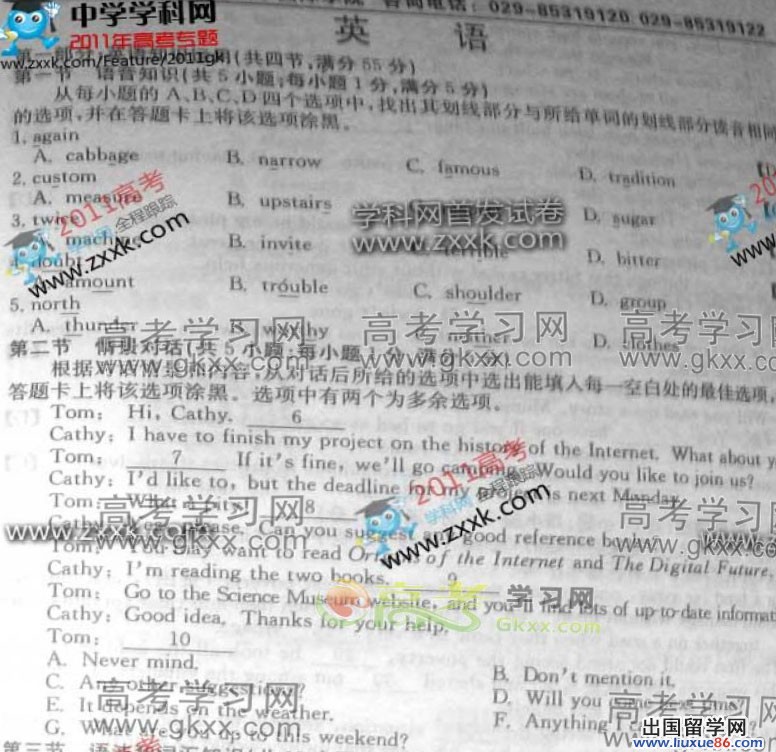 中学学科网
2011年高考专题
www.zxxk.com/Feature/2011gk
029-85319120 029-85319122
英 语
第一部分 (共四节,满分 55 分)
第一节 语音知识(共 5 小题;每小题 1 分,满分 5 分)
从每小题的 A、B、C、D 四个选项中,找出其划线部分与所给单词的划线部分读音相同
的选项,并在答题卡上将该选项涂黑。
1. again
A. cabbage B. narrow C. famous D. tradition
2. custom
A. measure B. upstairs D. sugar
3. twice
machine B. invite terrible D. bitter
4. doubt
amount B. trouble C. shoulder D. group
5. north
A. thunder B. worthy C. neither D. clothes
第二节 情景对话(共 5 小题;每小题 1 分,满分 5 分)
根据对话情景和内容,从对话后所给的选项中选出能填入每一空白处的最佳选项,
答题卡上将该选项涂黑。选项中有两个为多余选项。
Tom: Hi, Cathy. 6
Cathy: I have to finish my project on the history of the Internet. What about y
Tom: 7 If it's fine, we'll go camping. Would you like to join us?
Cathy: I'd like to, but the deadline for my project is next Monday.
Tom: What a pity! 8
Cathy: Yes, please. Can you suggest any good reference books
Tom: You may want to read Origins of the Internet and The Digital Future.
Cathy: I'm reading the two books. 9
Tom: Go to the Science Museum website, and you'll find lots of up-to-date informat
Cathy: Good idea. Thanks for your help.
Tom: 10
A. Never mind. B. Don't mention it.
C. Any other suggestions? D. Will you
E. It depends on the weather. F. Anything
G. What are you up to this weekend?
第三节
2011高考
学科网 全程跟踪
www.zxxk.com
学科网首发试卷
www.zxxk.com
高考学习网
www.gkxx.com
高考学习网
Gkxx.com
出国留学网
www.liuxue86.com